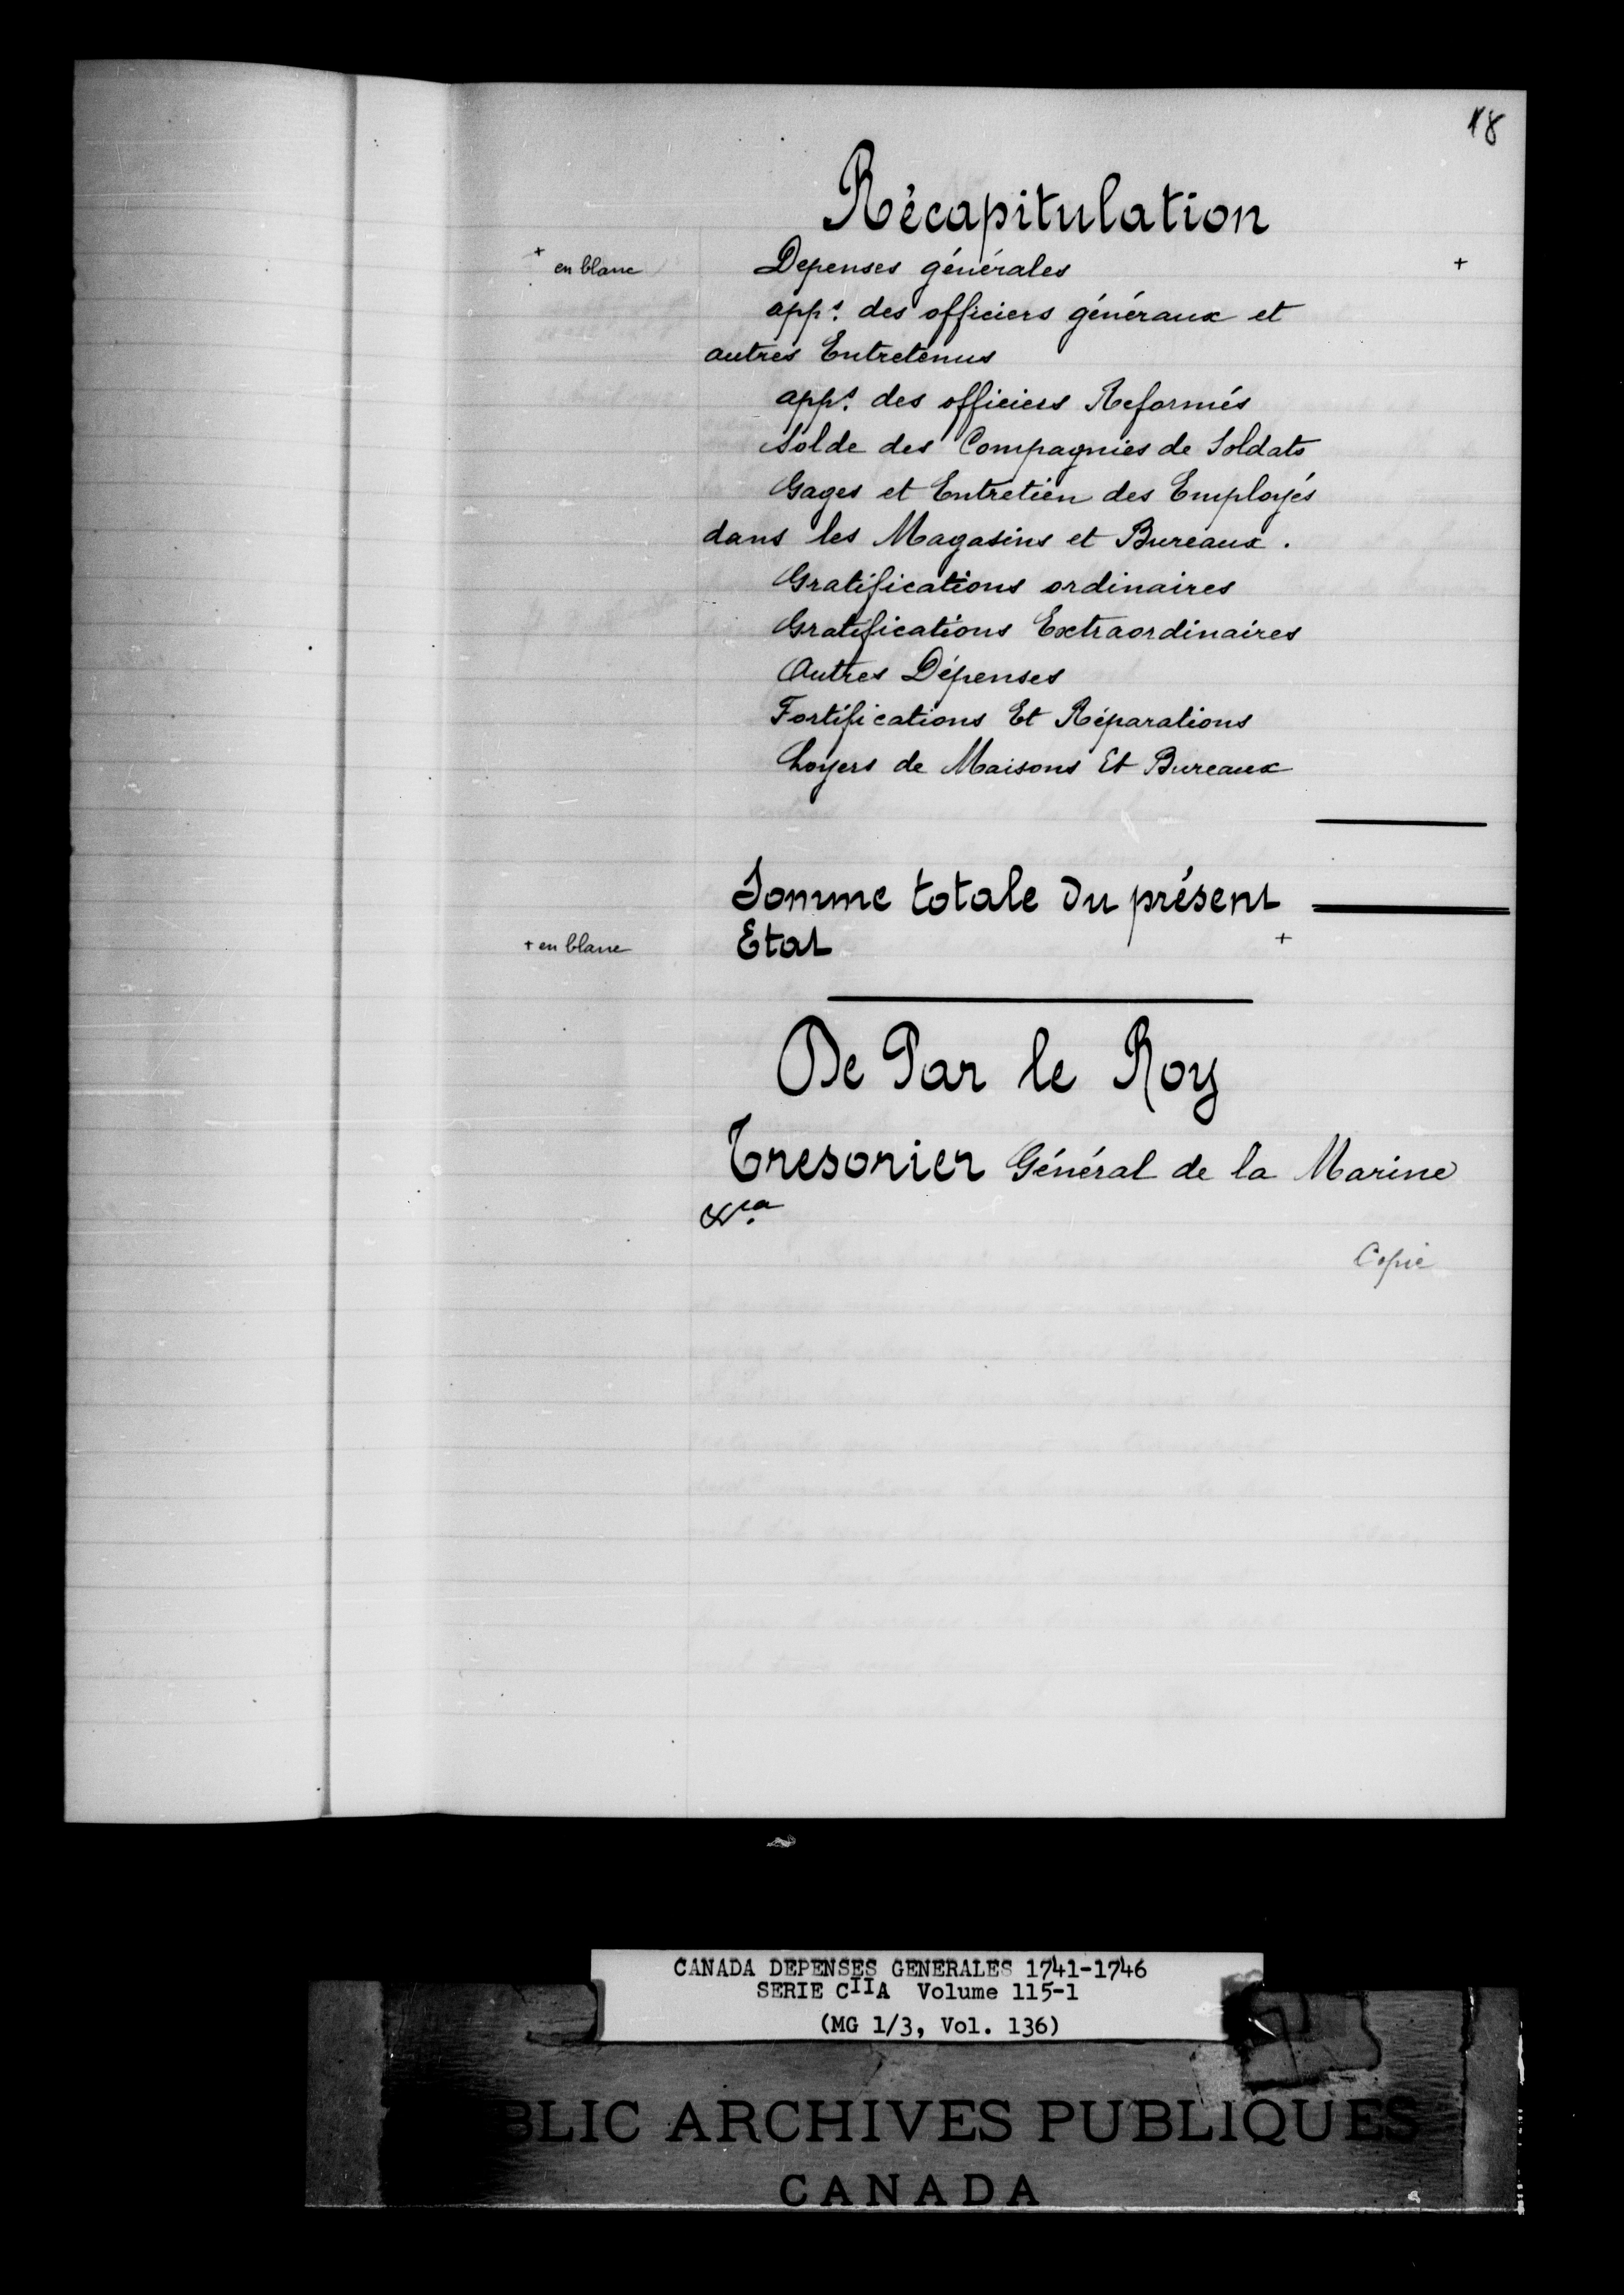 18
Récapitulation
+ en blanc
Depenses générales +
app.s des officiers généraux et
autres Entretenus
app.s des officiers Reformés
Solde des Compagnies de Soldats
Gages et Entretien des Employés
dans les Magasins et Bureaux.
Gratifications ordinaires
Gratifications Extraordinaires
Autres Dépenses
Fortifications Et Réparations
Loyers de Maisons Et Bureaux
Somme totale du présent
+ en blanc
Etat +
De Par le Roy
Tresorier Général de la Marine
&.ca
Copie
CANADA DEPENSES GENERALES 1741-1746
SERIE CIIA Volume 115-1
(MG 1/3, Vol. 136)
BLIC ARCHIVES PUBLIQUES
CANADA